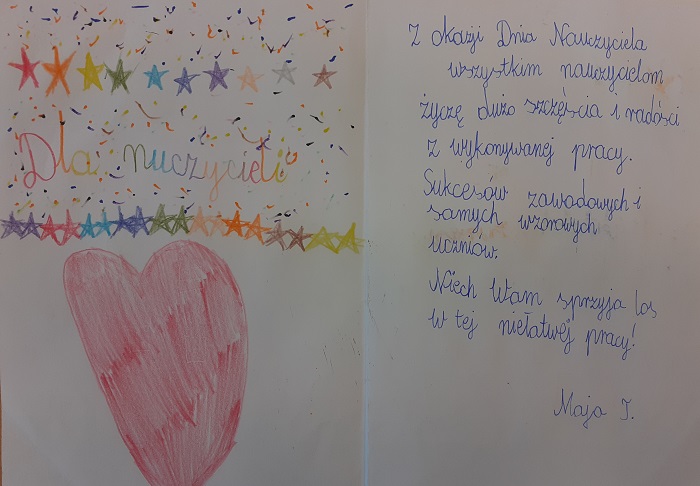 Dla nuczycieli
Z okazji Dnia Nauczyciela
wszystkim nauczycielom
życzę dużo szczęścia i radości
z wykonywanej pracy.
Sukcesów zawodowych i
samych wzorowych
uczniów.
Niech Wam sprzyja los
w tej niełatwej pracy!
Maja J.